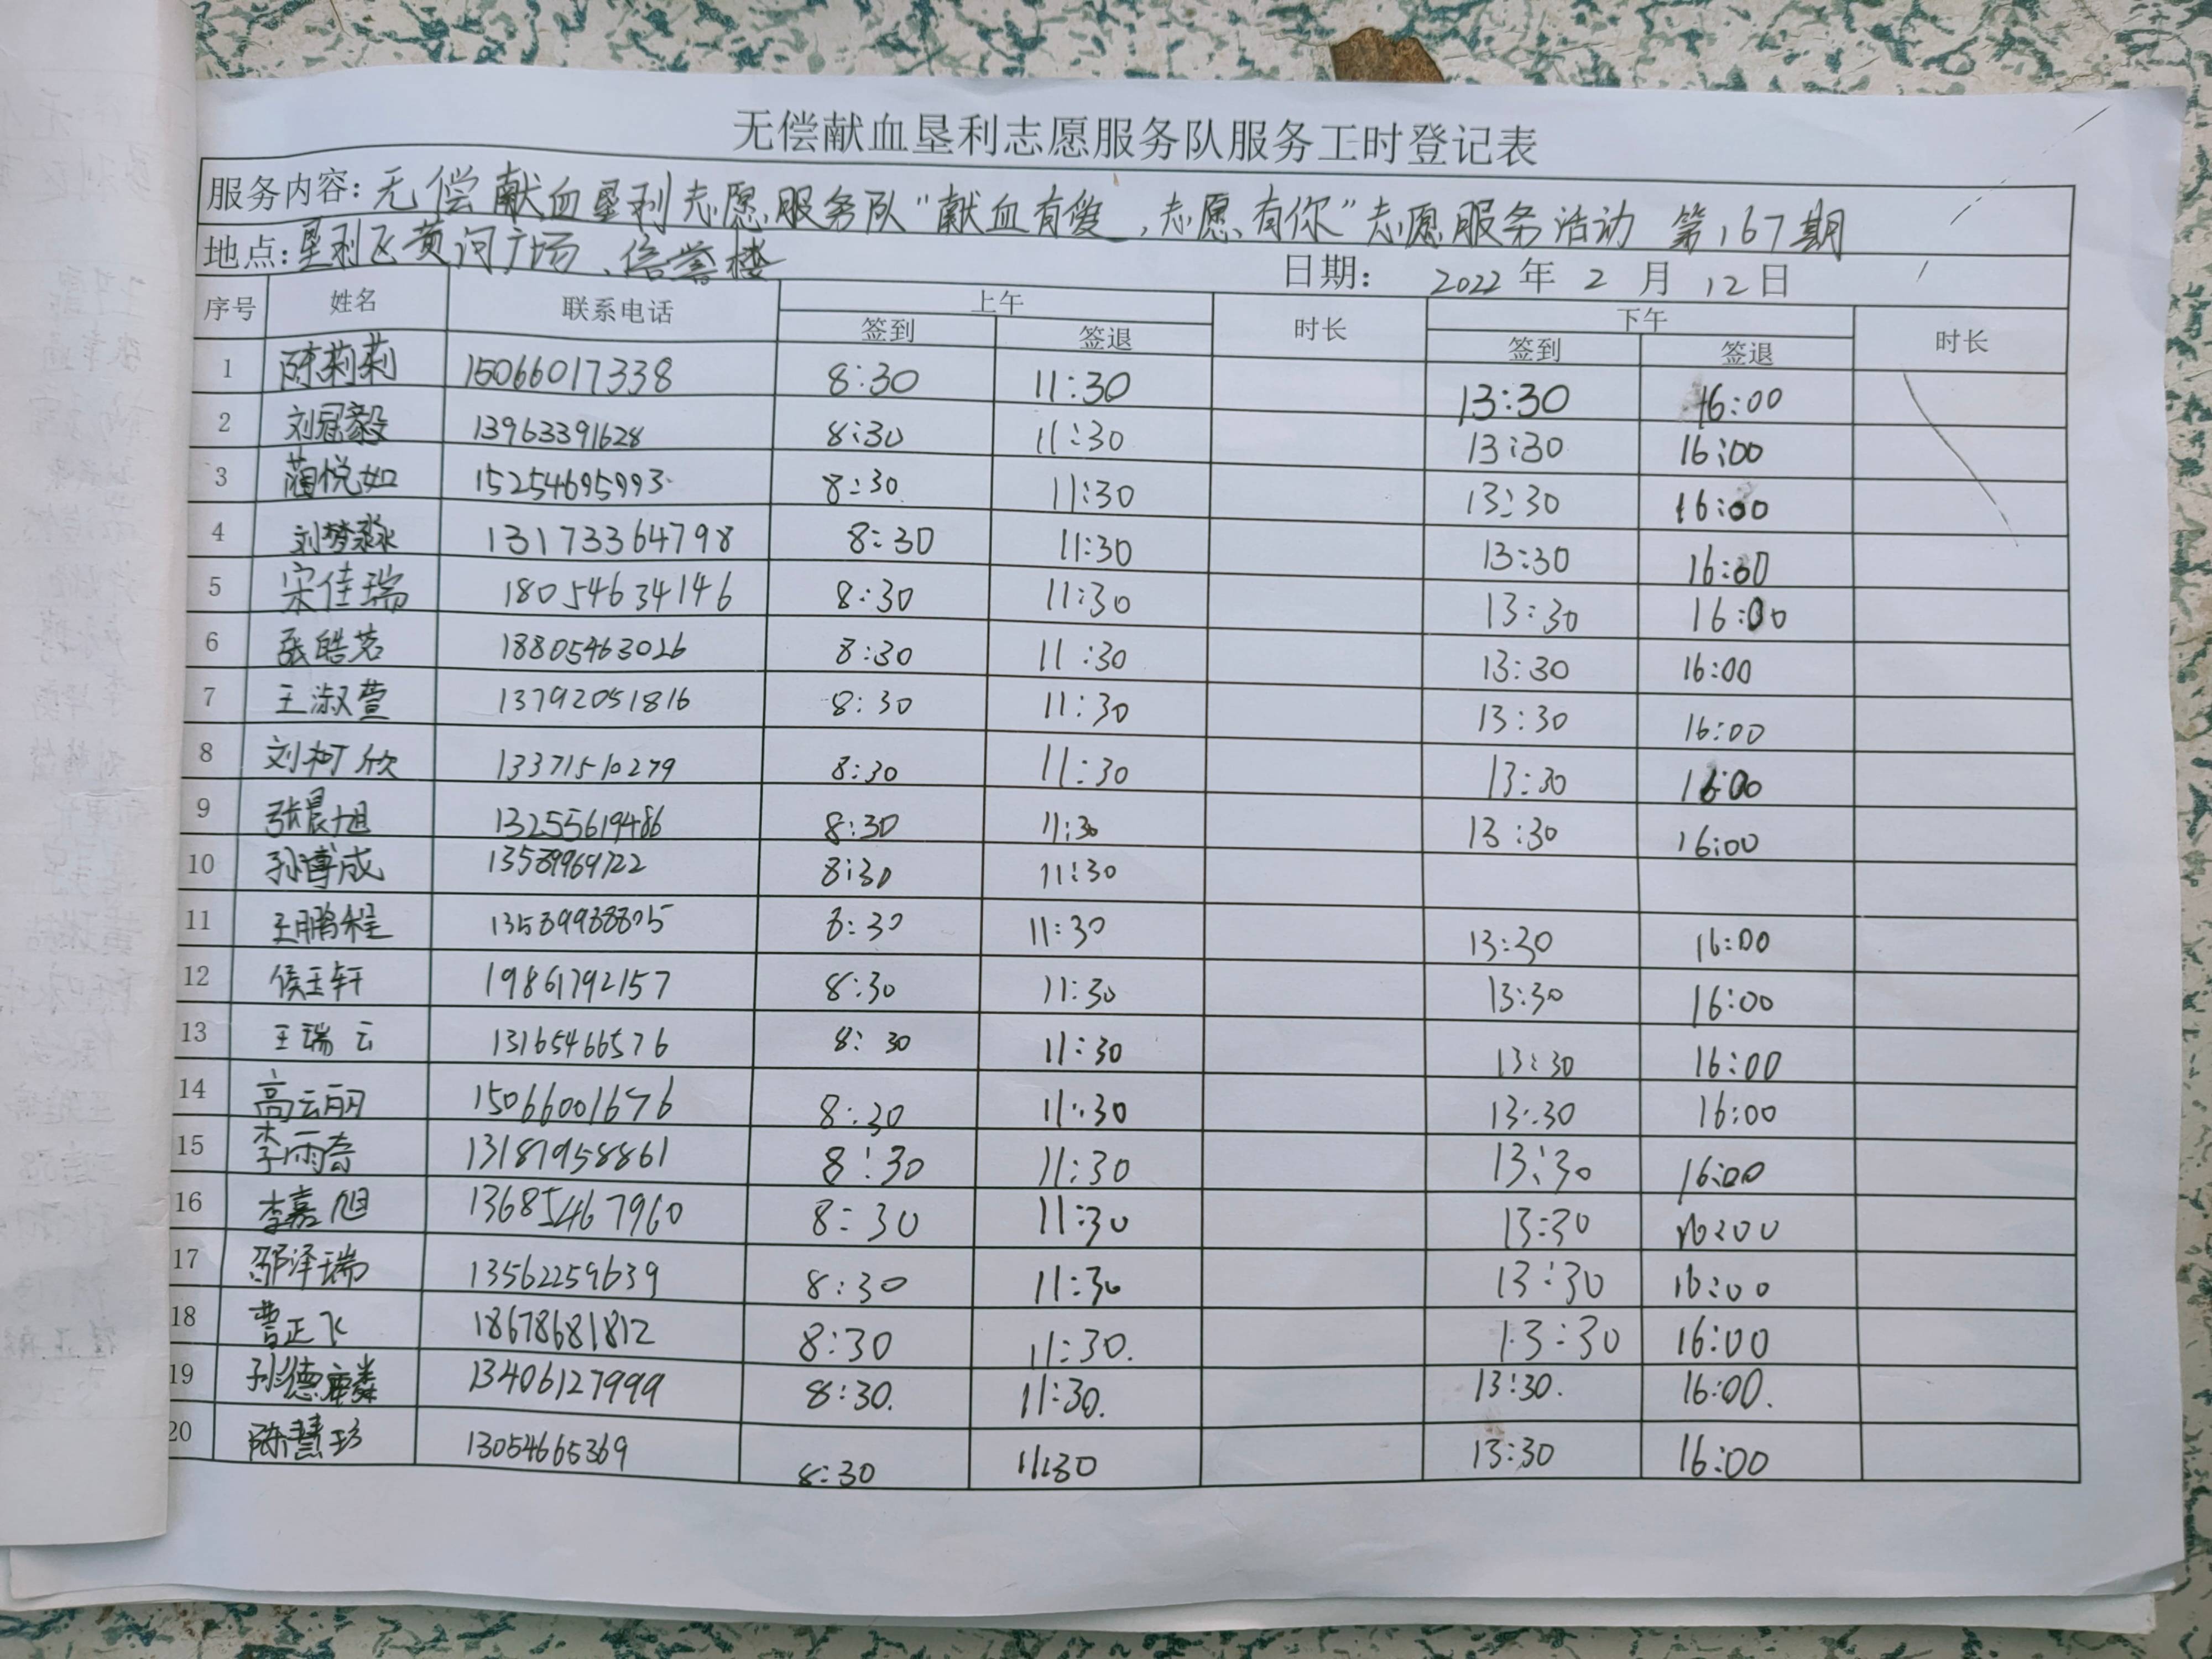 无偿献血垦利志愿服务队服务工时登记表
服务内容: 无偿献血垦利志愿服务队“献血有爱,志愿有你”志愿服务活动 第167期
地点: 垦利区黄河广场、信誉楼 日期: 2022年2月12日
序号 姓名 联系电话 上午 时长 下午 时长
签到 签退 签到 签退
1 陈莉莉 15066017338 8:30 11:30 13:30 16:00
2 刘冠毅 13963391628 8:30 11:30 13:30 16:00
3 蔺悦如 15254695993 8:30 11:30 13:30 16:00
4 刘梦淼 13173364798 8:30 11:30 13:30 16:00
5 宋佳瑞 18054634146 8:30 11:30 13:30 16:00
6 张皓茗 18805463026 8:30 11:30 13:30 16:00
7 王淑萱 13792051816 8:30 11:30 13:30 16:00
8 刘柯欣 13371510279 8:30 11:30 13:30 16:00
9 张晨旭 13255619486 8:30 11:30 13:30 16:00
10 孙博成 8:30 11:30
11 王鹏程 8:30 11:30 13:30 16:00
12 侯玉轩 19861792157 8:30 11:30 13:30 16:00
13 王瑞云 13165466576 8:30 11:30 13:30 16:00
14 高云丽 15066001676 8:30 11:30 13:30 16:00
15 李雨奇 13187958861 8:30 11:30 13:30 16:00
16 李嘉旭 13685467960 8:30 11:30 13:30 16:00
17 邵泽瑞 13562259639 8:30 11:30 13:30 16:00
18 曹正飞 18678681812 8:30 11:30. 13:30 16:00
19 孙德麟 13406127999 8:30. 11:30. 13:30. 16:00.
20 陈慧珍 13054665369 8:30 11:30 13:30 16:00